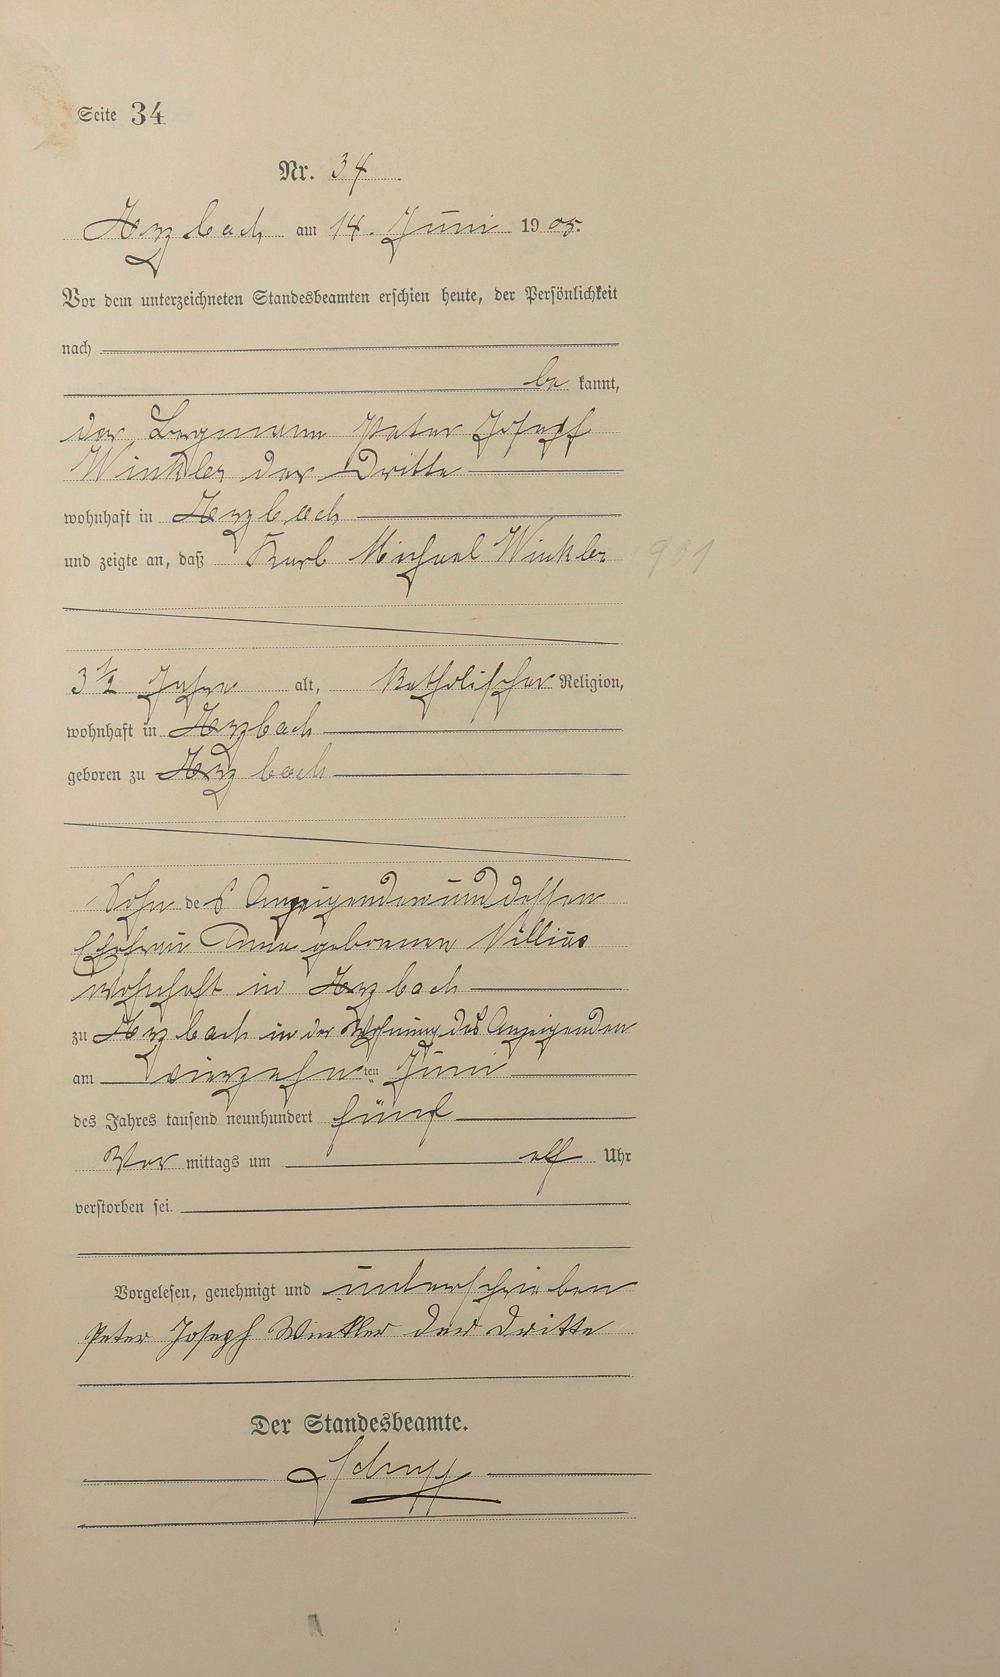 Seite 34
Nr. 34
Herzbach am 14. Juni 1905.
Vor dem unterzeichneten Standesbeamten erschien heute, der Persönlichkeit
nach
be kannt,
der Bergmann Peter Josepf
Winkler der Dritte
wohnhaft in
und zeigte an, daß Karl Michael Winkler
3 1/2 Jahre alt, katholischer Religion,
wohnhaft in
geboren zu
Sohn des Anzeigenden und dessen
Ehefrau Anna geborenen Villius
wohnhaft in
zu in der Wohnung des Anzeigenden
am vierzehnten Juni
des Jahres tausend neunhundert fünf
Vor mittags um elf Uhr
verstorben sei.
Vorgelesen, genehmigt und unterschrieben
Peter Joseph Winkler der Dritte
Der Standesbeamte.